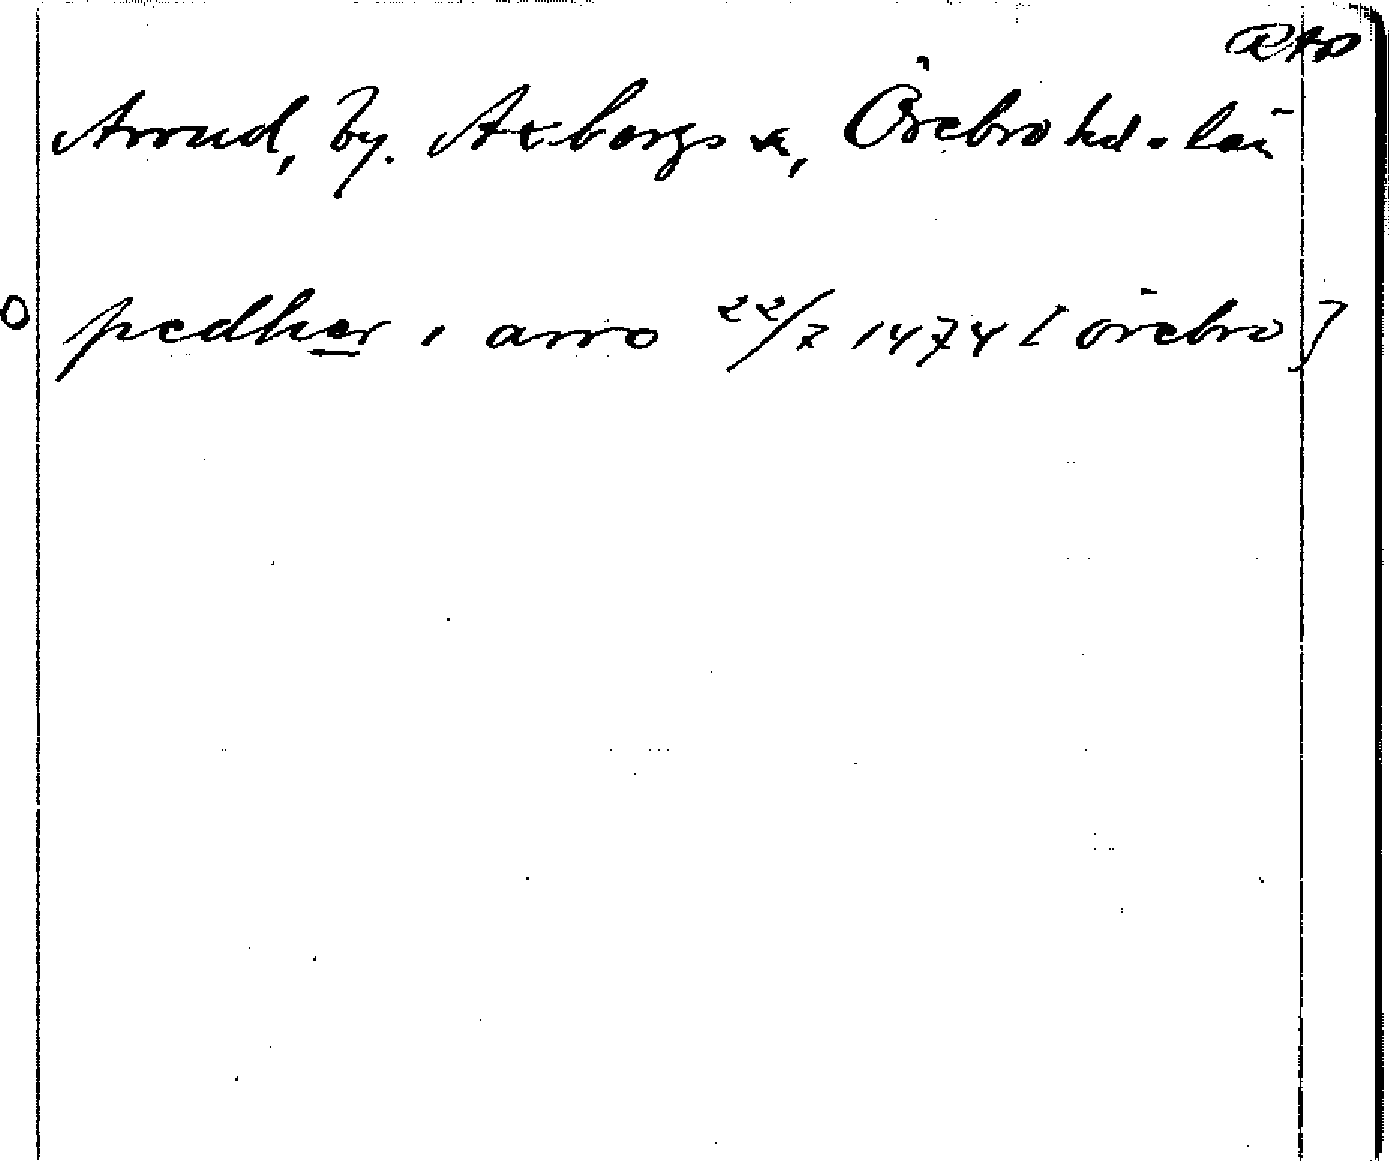 RAP
Arrud, by. Axbergs sn, Örebro hd. län
pedher i arro 22/7 1474 [örebro]